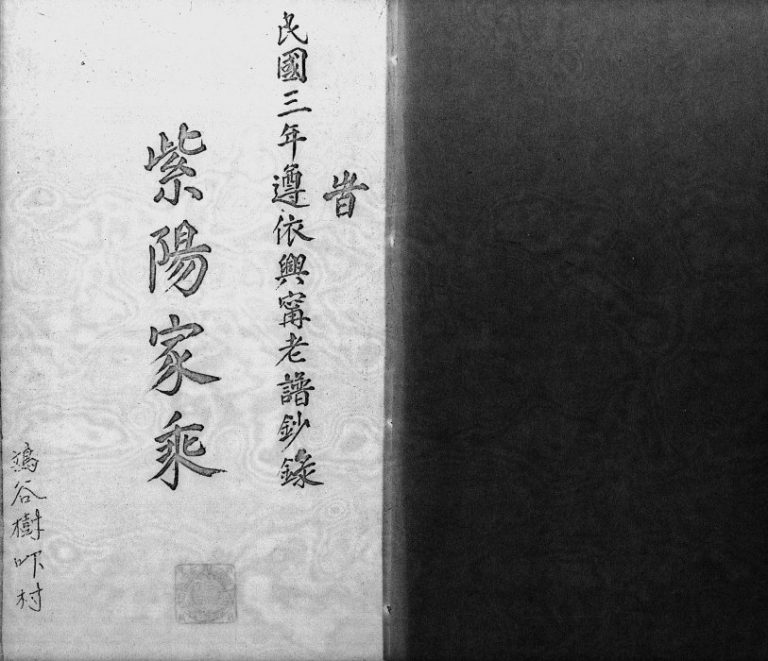 旹
民國三年遵依興甯老譜鈔錄
紫陽家乘
谷樹吓村